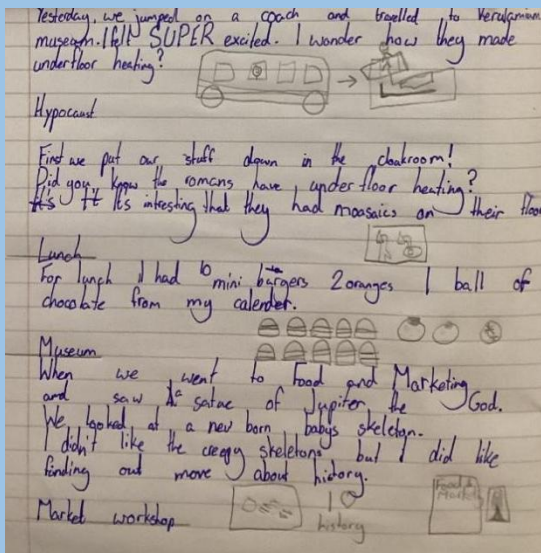 Yesterday, we jumped on a coach and travelled to Verulamium
museum. I felt SUPER excited. I wonder how they made
underfloor heating?
Hypocaust
First we put our stuff down in the cloakroom!
Did you know the romans have under floor heating?
It's intresting that they had moasaics on their floor
Lunch
For lunch I had 10 mini burgers 2 oranges 1 ball of
chocolate from my calender.
Museum
When we went to Food and Marketing
and saw a satue of Jupiter the God.
We looked at a new born babys skeleton.
I didn't like the creepy skeletons but I did like
finding out more about history.
Food &
Market
history
Market workshop